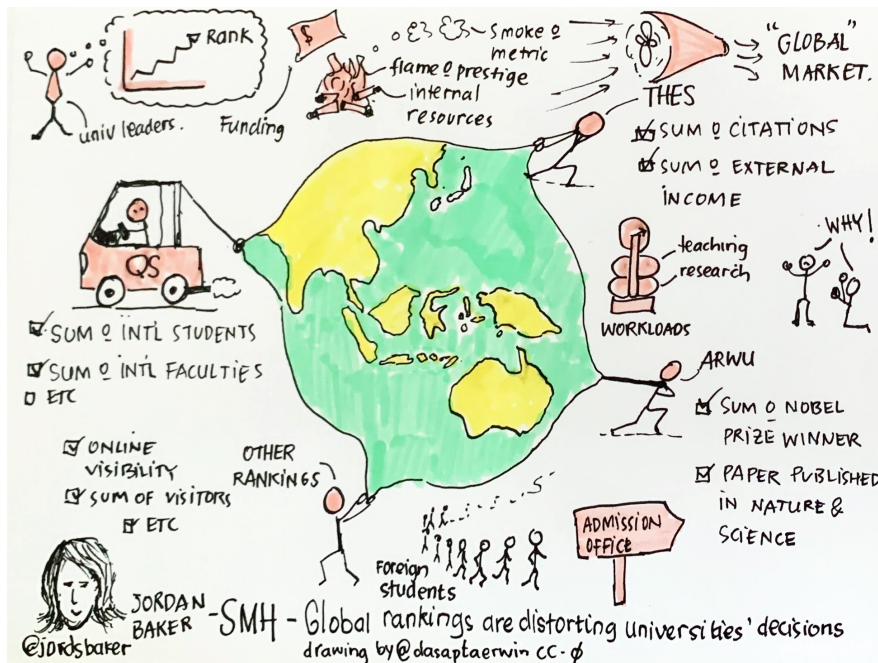 RANK
univ leaders.
Funding
$
smoke o
metric
flame o prestige
internal
resources
"GLOBAL"
MARKET.
THES
SUM o CITATIONS
SUM o EXTERNAL
INCOME
WHY!
teaching
research
WORKLOADS
QS
SUM o INTL STUDENTS
SUM o INTL FACULTIES
ETC
ARWU
SUM o NOBEL
PRIZE WINNER
PAPER PUBLISHED
IN NATURE &
SCIENCE
ONLINE
VISIBILITY
SUM OF VISITORS
ETC
OTHER
RANKINGS
Foreign
students
ADMISSION
OFFICE
JORDAN
BAKER
@jordsbaker
-SMH - Global rankings are distorting universities' decisions
drawing by @dasaptaerwin CC-0